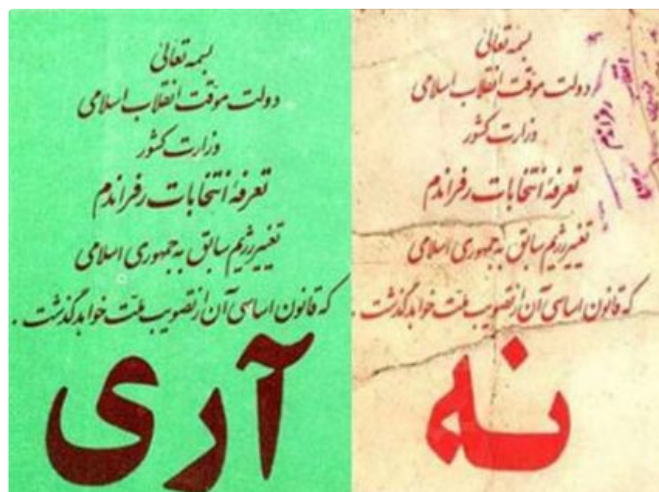 بسمه تعالی
دولت موقت انقلاب اسلامی
وزارت کشور
تعرفهٔ انتخابات رفراندم
تغییر رژیم سابق به جمهوری اسلامی
که قانون اساسی آن از تصویب ملت خواهد گذشت .
آری
بسمه تعالی
دولت موقت انقلاب اسلامی
وزارت کشور
تعرفهٔ انتخابات رفراندم
تغییر رژیم سابق به جمهوری اسلامی
که قانون اساسی آن از تصویب ملت خواهد گذشت .
نه
رفراندم